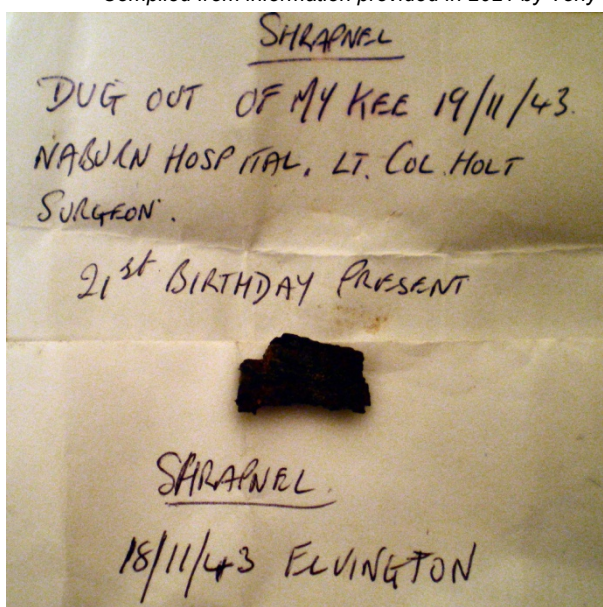 Compiled from information provided in 2021 by Tony
SHRAPNEL
DUG OUT OF MY KEE 19/11/43.
NABURN HOSPITAL, LT. COL. HOLT
SURGEON.
21st BIRTHDAY PRESENT
SHRAPNEL.
18/11/43 ELVINGTON